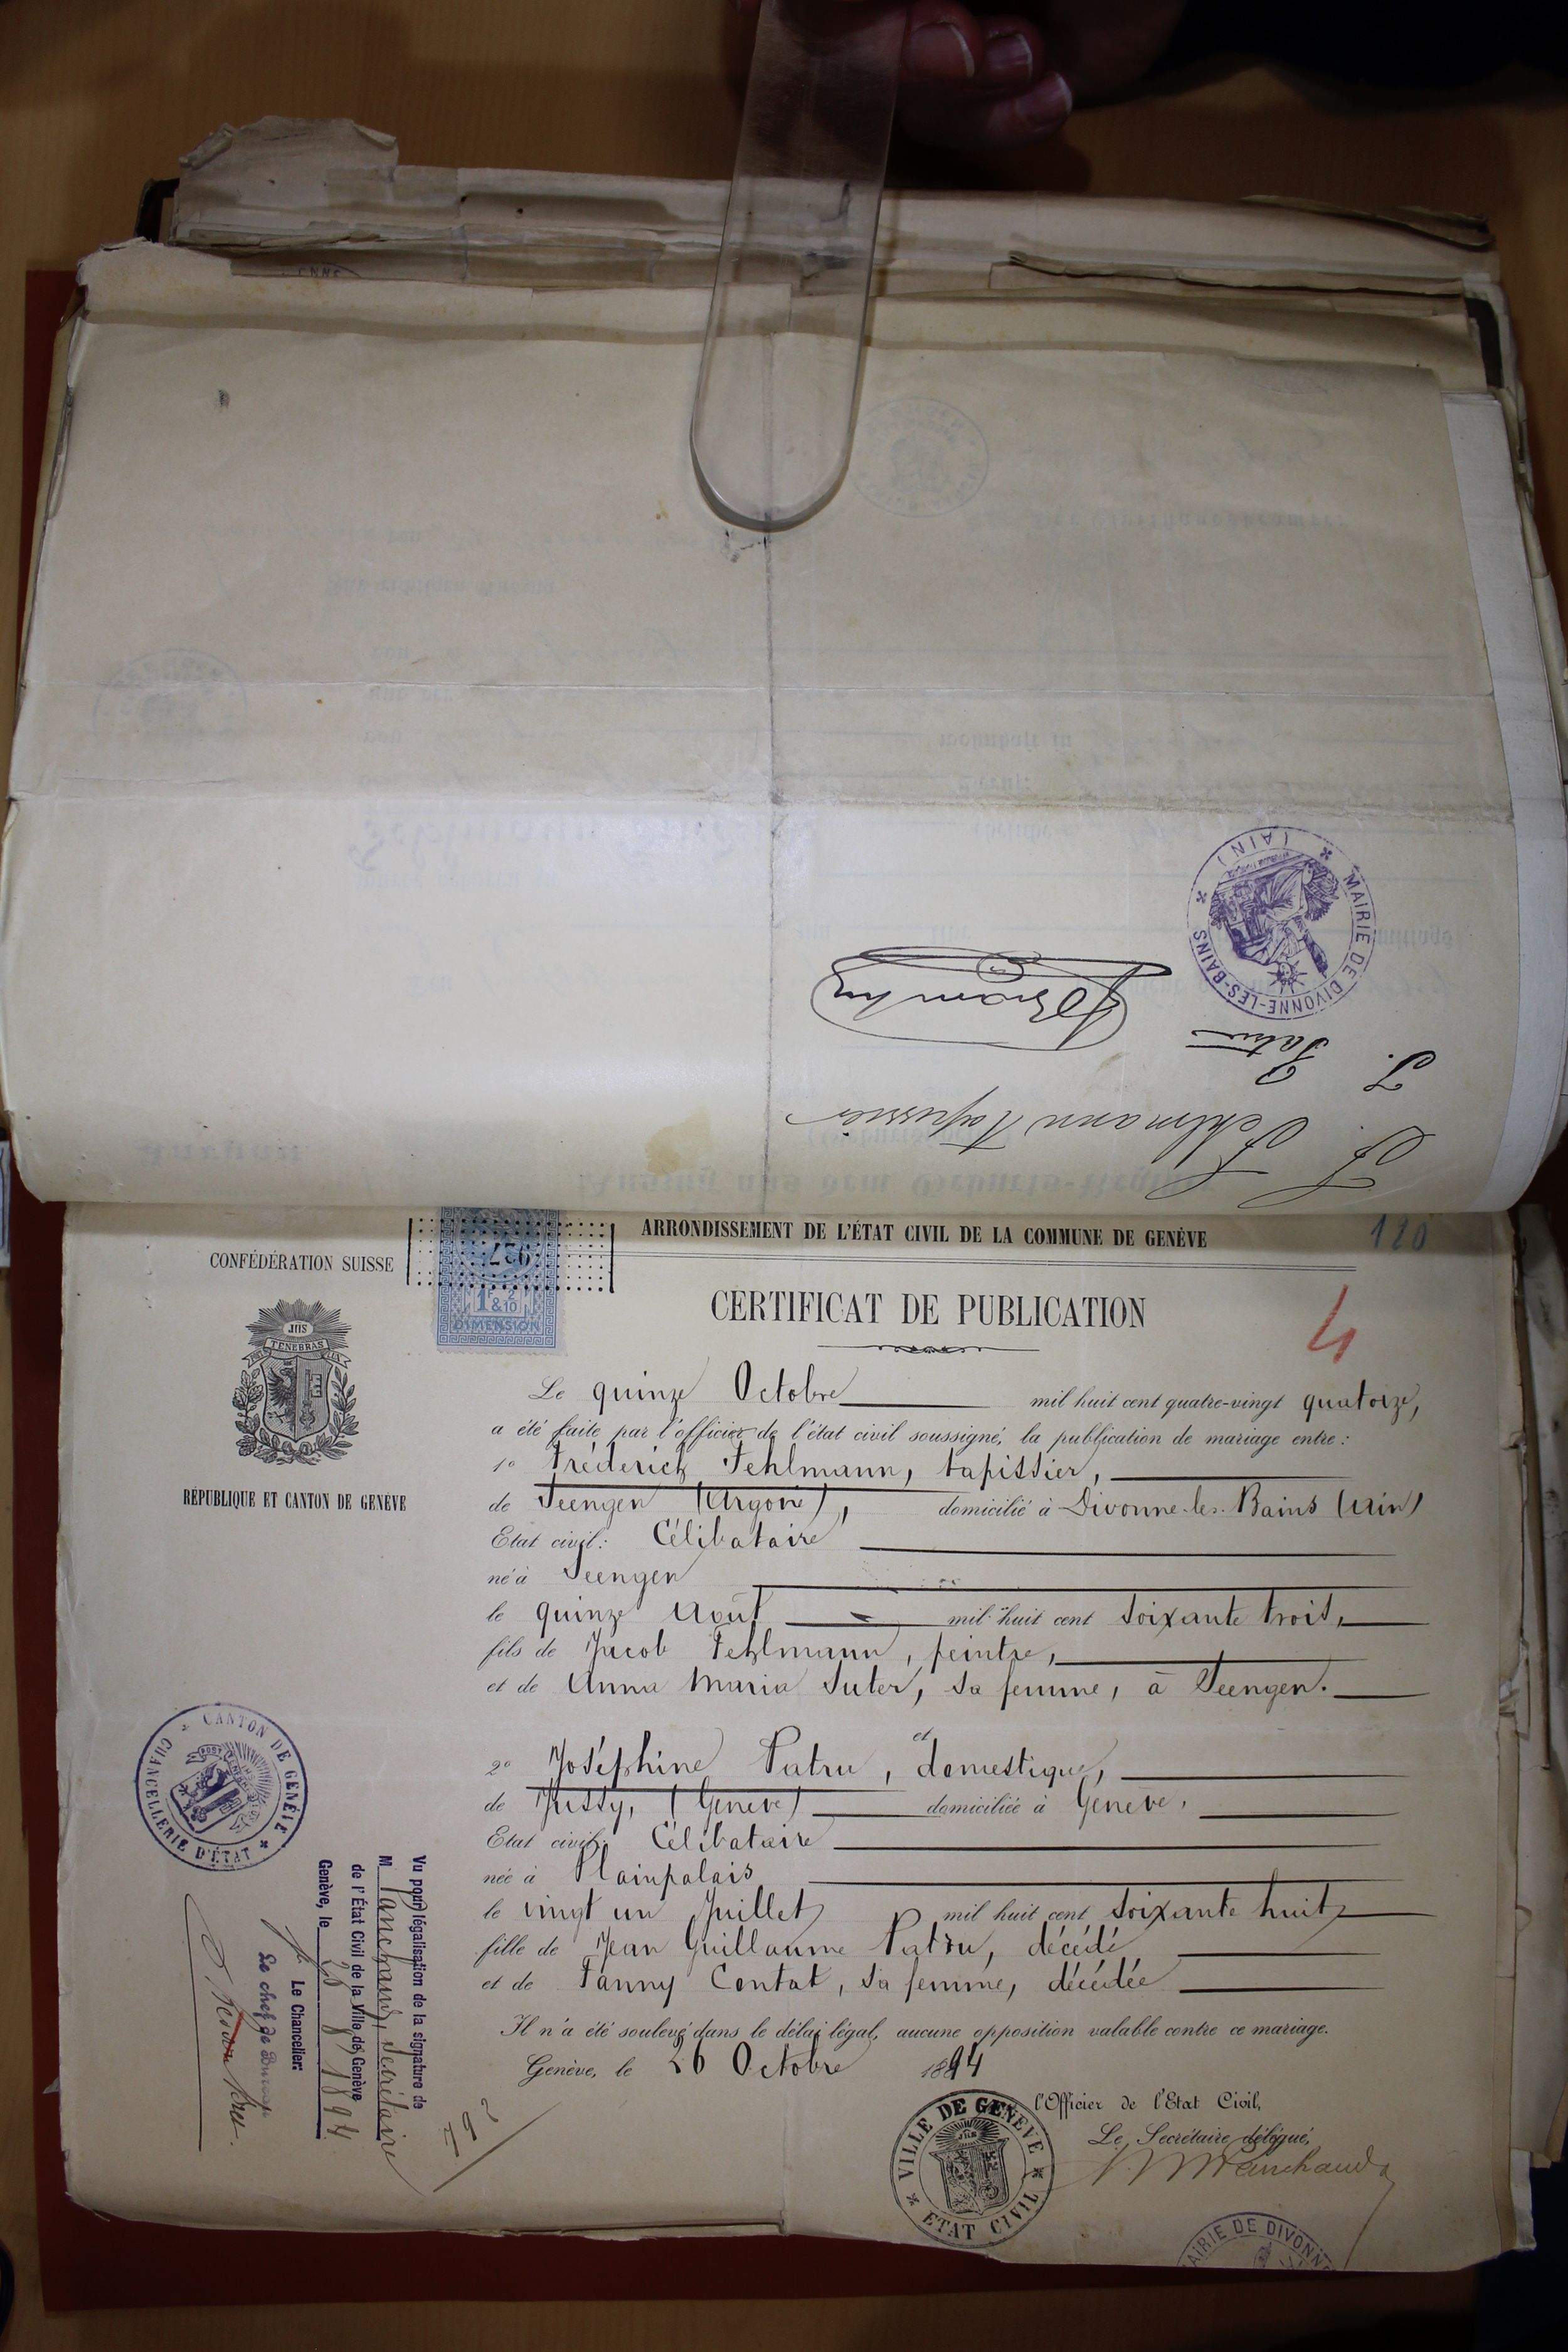 MAIRIE DE DIVONNE-LES-BAINS
(AIN)
J. Patru
F. Fehlmann tapissier
ARRONDISSEMENT DE L'ÉTAT CIVIL DE LA COMMUNE DE GENÈVE
120
CONFÉDÉRATION SUISSE
1F & 2/10
DIMENSION
CERTIFICAT DE PUBLICATION
4
POST TENEBRAS LUX
RÉPUBLIQUE ET CANTON DE GENÈVE
Le quinze Octobre mil huit cent quatre-vingt quatorze,
a été faite par l'officier de l'état civil soussigné, la publication de mariage entre:
1o Fréderich Fehlmann, tapissier,
de Seengen (Argovie), domicilié à Divonne-les-Bains (Ain)
Etat civil: Célibataire
né à Seengen
le quinze Août mil huit cent soixante trois,
fils de Jacob Fehlmann, peintre,
et de Anna Maria Suter, sa femme, à Seengen.
et
2o Joséphine Patru, domestique,
de Jussy, (Genève) domiciliée à Genève,
Etat civil: Célibataire
née à Plainpalais
le vingt un Juillet mil huit cent soixante huit,
fille de Jean Guillaume Patru, décédé
et de Fanny Contat, sa femme, décédée
Il n'a été soulevé dans le délai légal, aucune opposition valable contre ce mariage.
Genève, le 26 Octobre 1894
l'Officier de l'Etat Civil,
Le Secrétaire délégué,
Marchand
VILLE DE GENÈVE
ETAT CIVIL
MAIRIE DE DIVONNE
CANTON DE GENÈVE
CHANCELLERIE D'ÉTAT
Vu pour légalisation de la signature de
M. Marchand, Secrétaire
de l'État Civil de la Ville de Genève
Genève, le 1894
Le Chancelier:
Le chef de Bureau